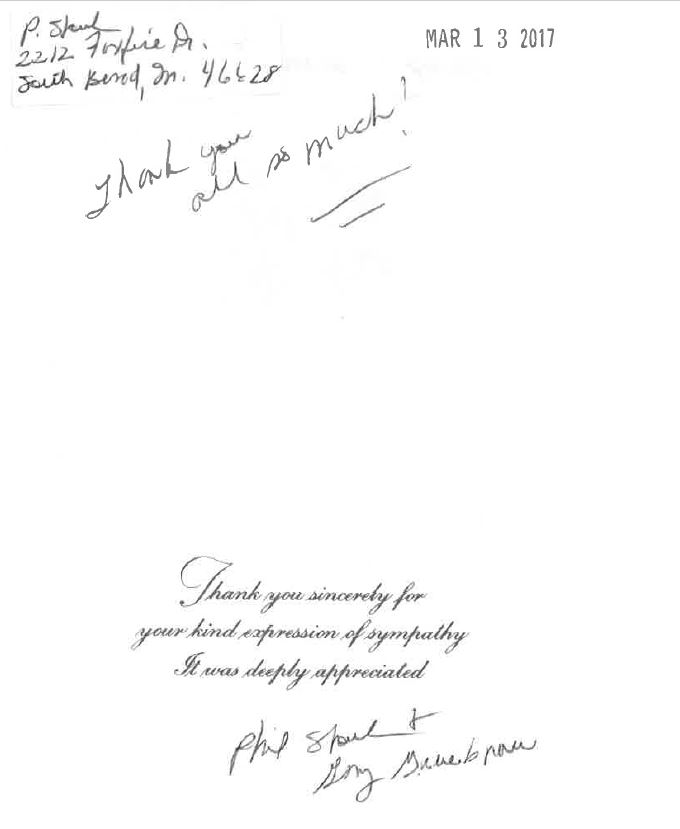 P.
2212 Foxfire Dr.
South Bend, In. 46628
MAR 13 2017
Thank you
all so much!
Thank you sincerely for
your kind expression of sympathy
It was deeply appreciated
Phil